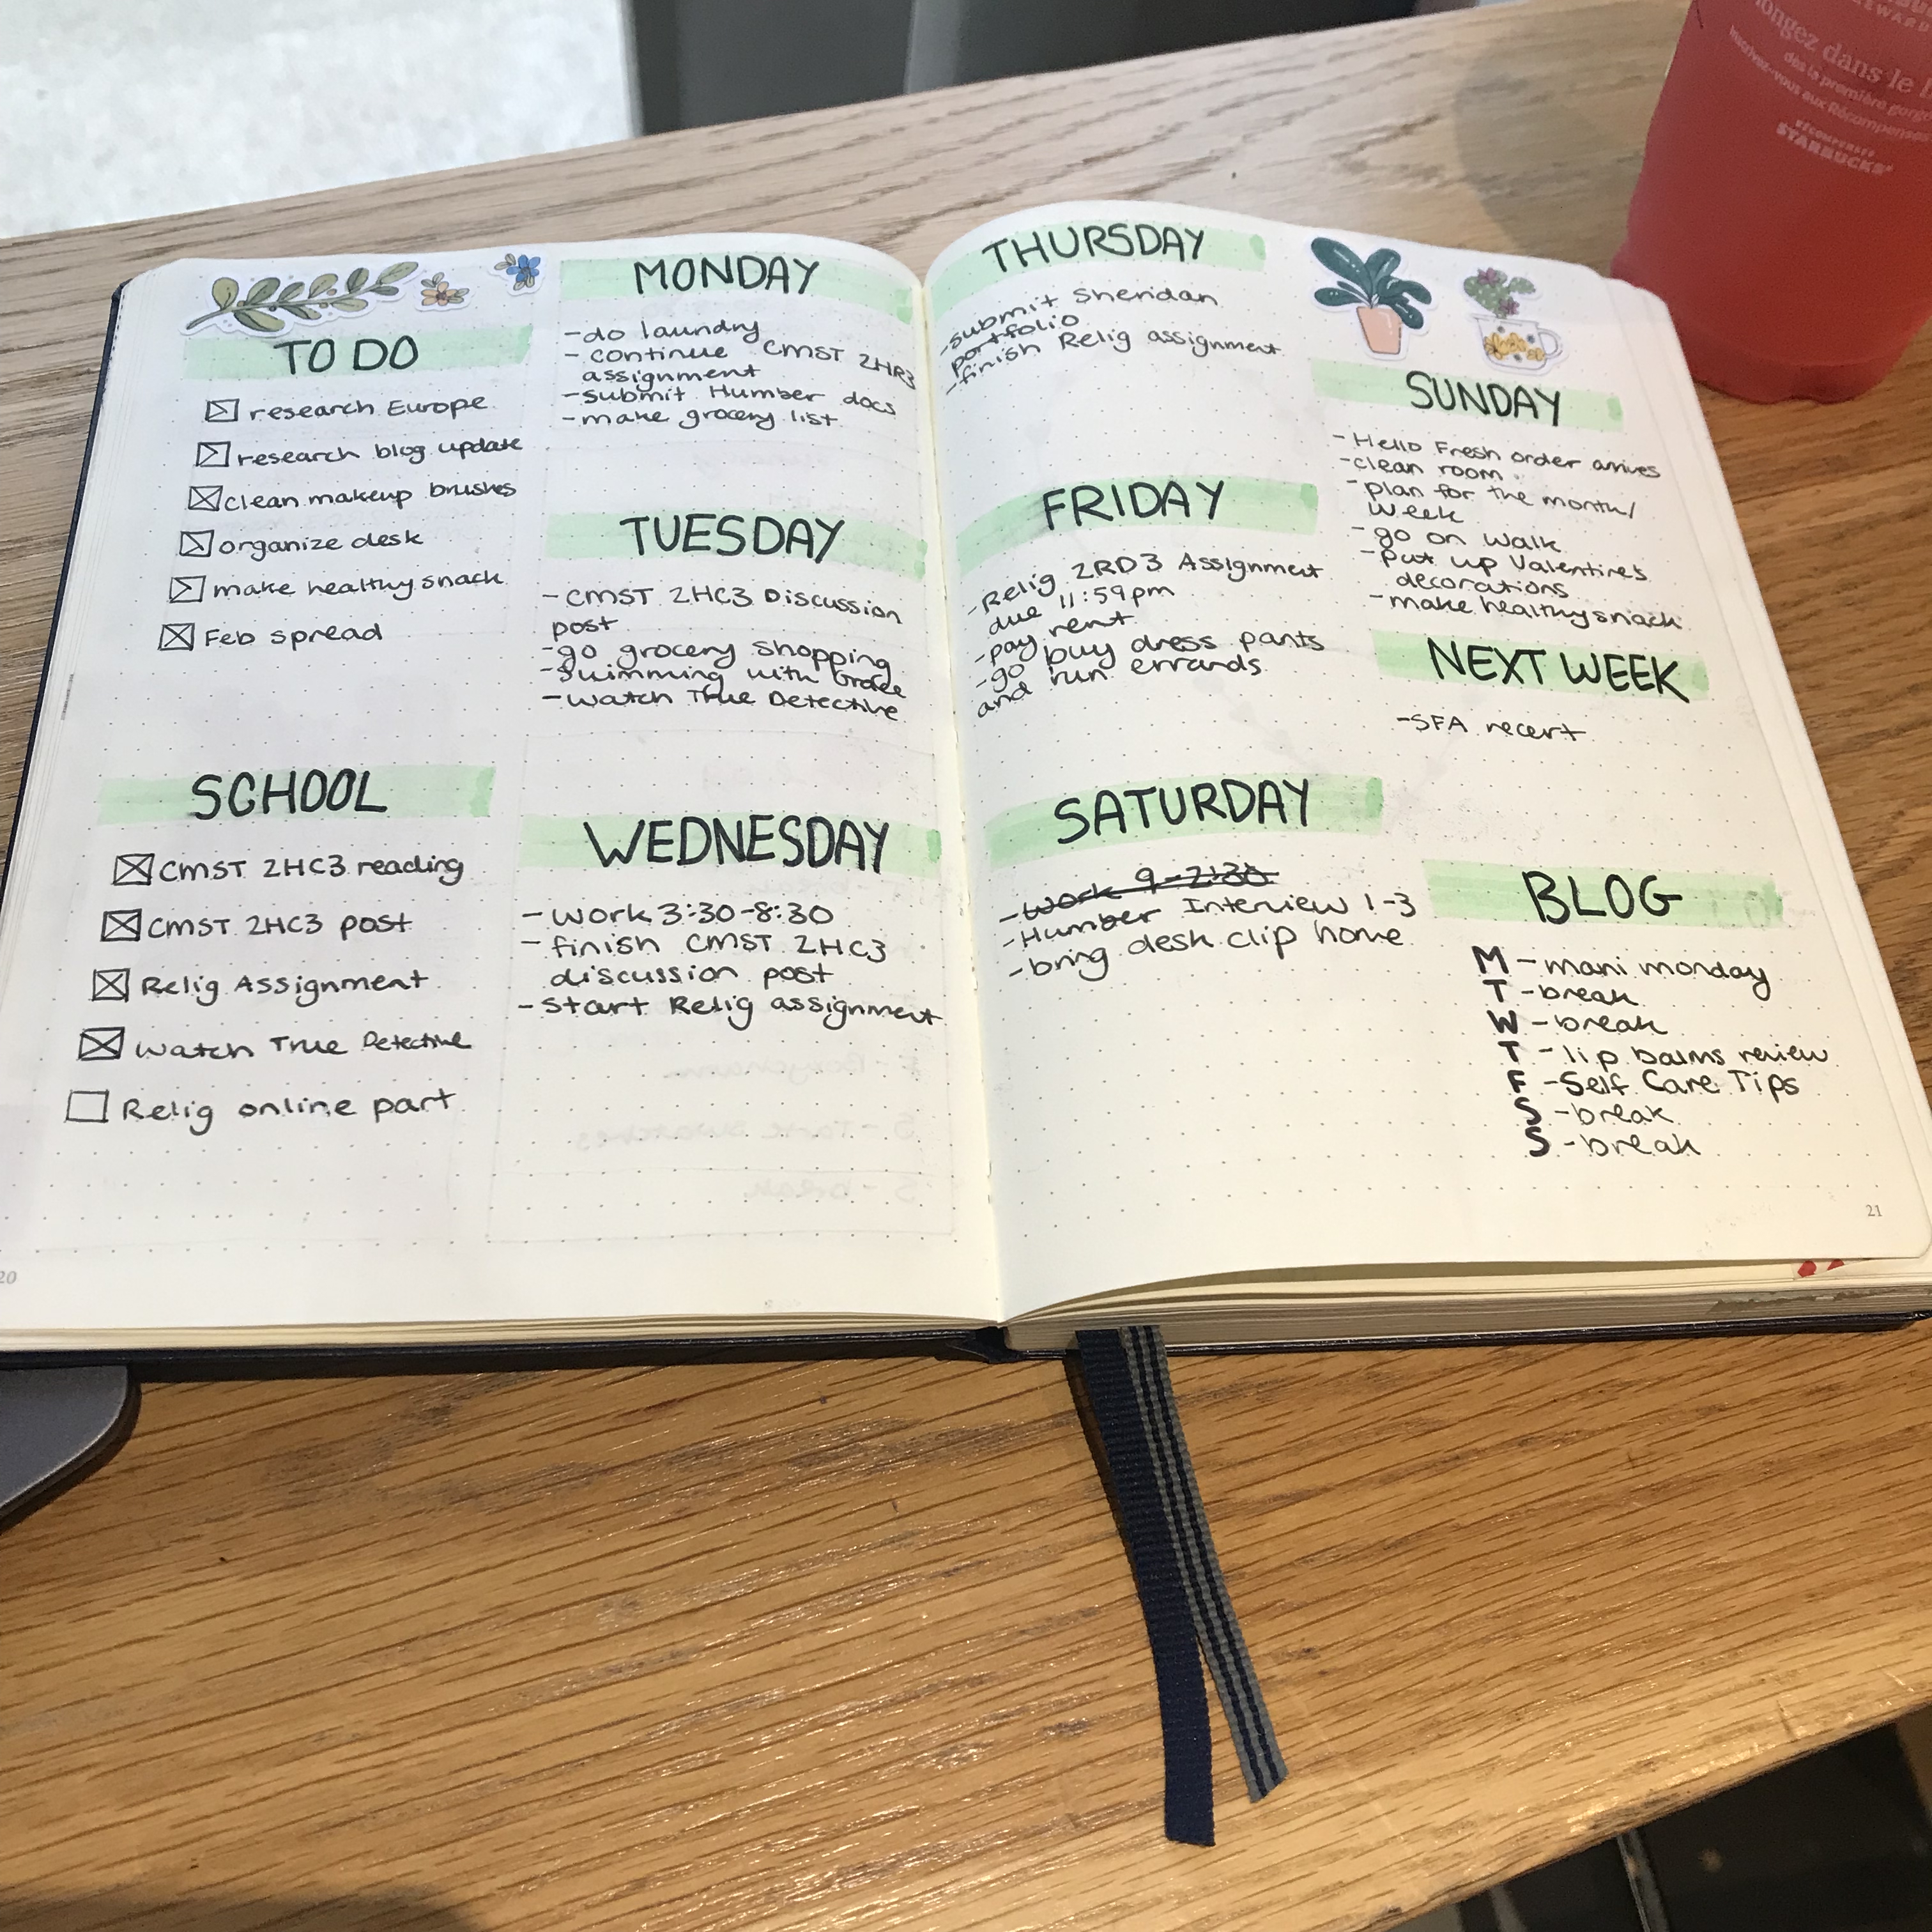 TO DO
research Europe
research blog update
clean makeup brushes
organize desk
make healthy snack
Feb spread
SCHOOL
CMST 2HC3 reading
CMST 2HC3 post
Relig Assignment
Watch True Detective
Relig online part
20
MONDAY
-do laundry
- continue CMST 2HR3
assignment
-submit Humber docs
-make grocery list
TUESDAY
- CMST 2HC3 Discussion
post
-go grocery shopping
-Swimming with Grace
-watch True Detective
WEDNESDAY
- work 3:30-8:30
- finish CMST 2HC3
discussion post
- start Relig assignment
THURSDAY
-submit Sheridan
portfolio
-finish Relig assignment
FRIDAY
-Relig 2RD3 Assignment
due 11:59pm
-pay rent
-go buy dress pants
and run errands
SATURDAY
-work 9-2:30
-Humber Interview 1-3
-bring desk clip home
SUNDAY
-Hello Fresh order arrives
-clean room
-plan for the month/
week
-go on walk
-put up Valentine's
decorations
-make healthy snack
NEXT WEEK
-SFA recert
BLOG
M -mani monday
T -break
W -break
T -lip balms review
F -Self Care Tips
S -break
S -break
21
dans le
dès la première
aux
RÉCOMPENSES
STARBUCKS